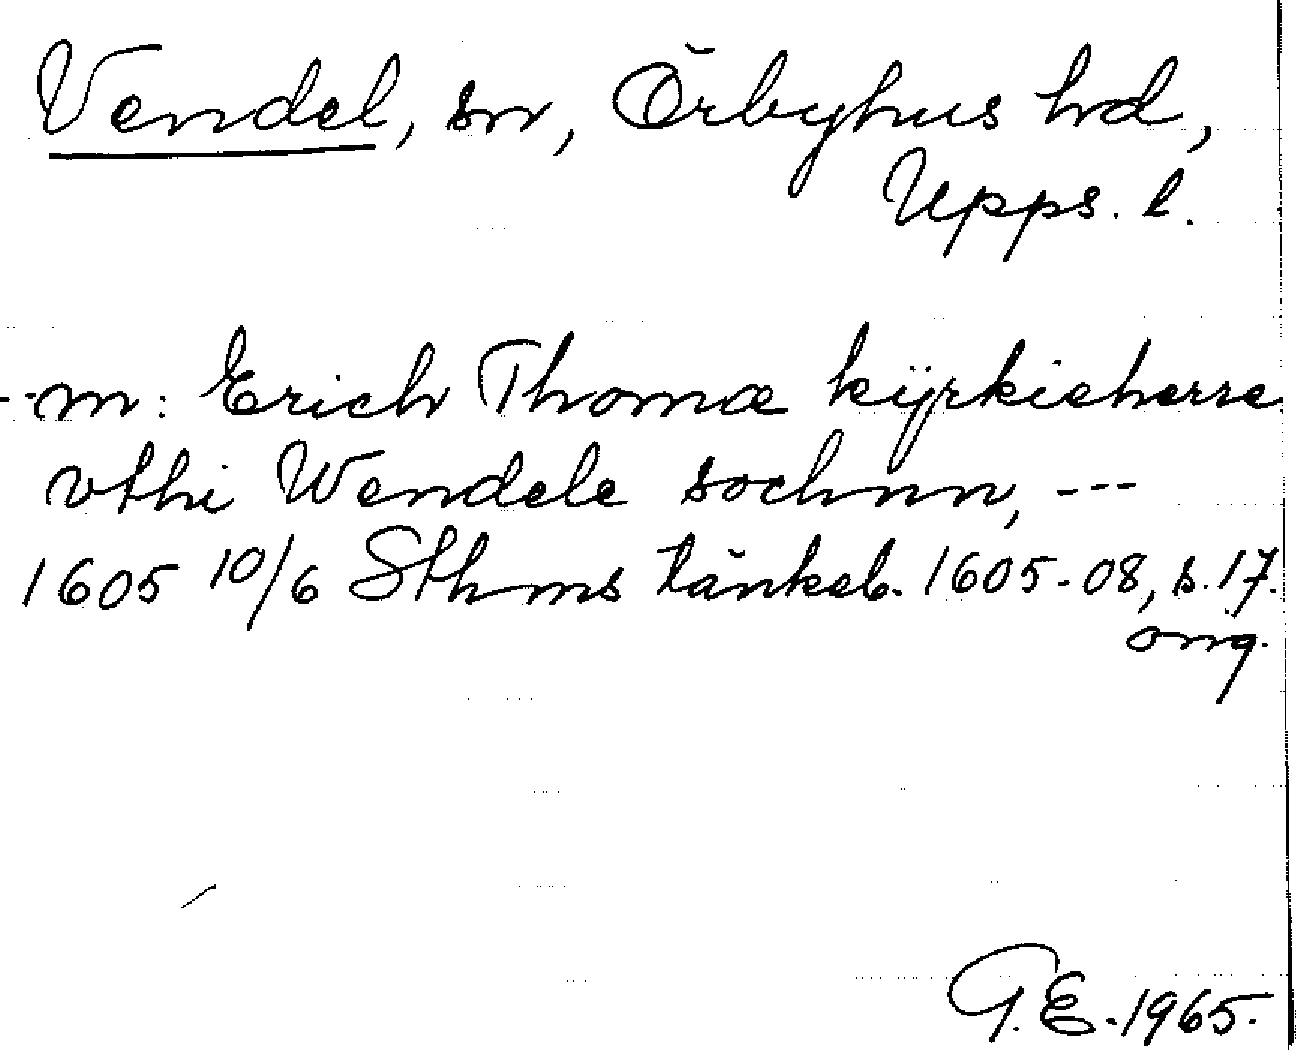 Vendel, sn, Örbyhus hd,
Upps. l.
--m: Erich Thomæ kÿrkieherre
vthi Wendele sochnn, ---
1605 10/6 Sthms tänkeb. 1605-08, s. 17.
orig.
G. E. 1965.